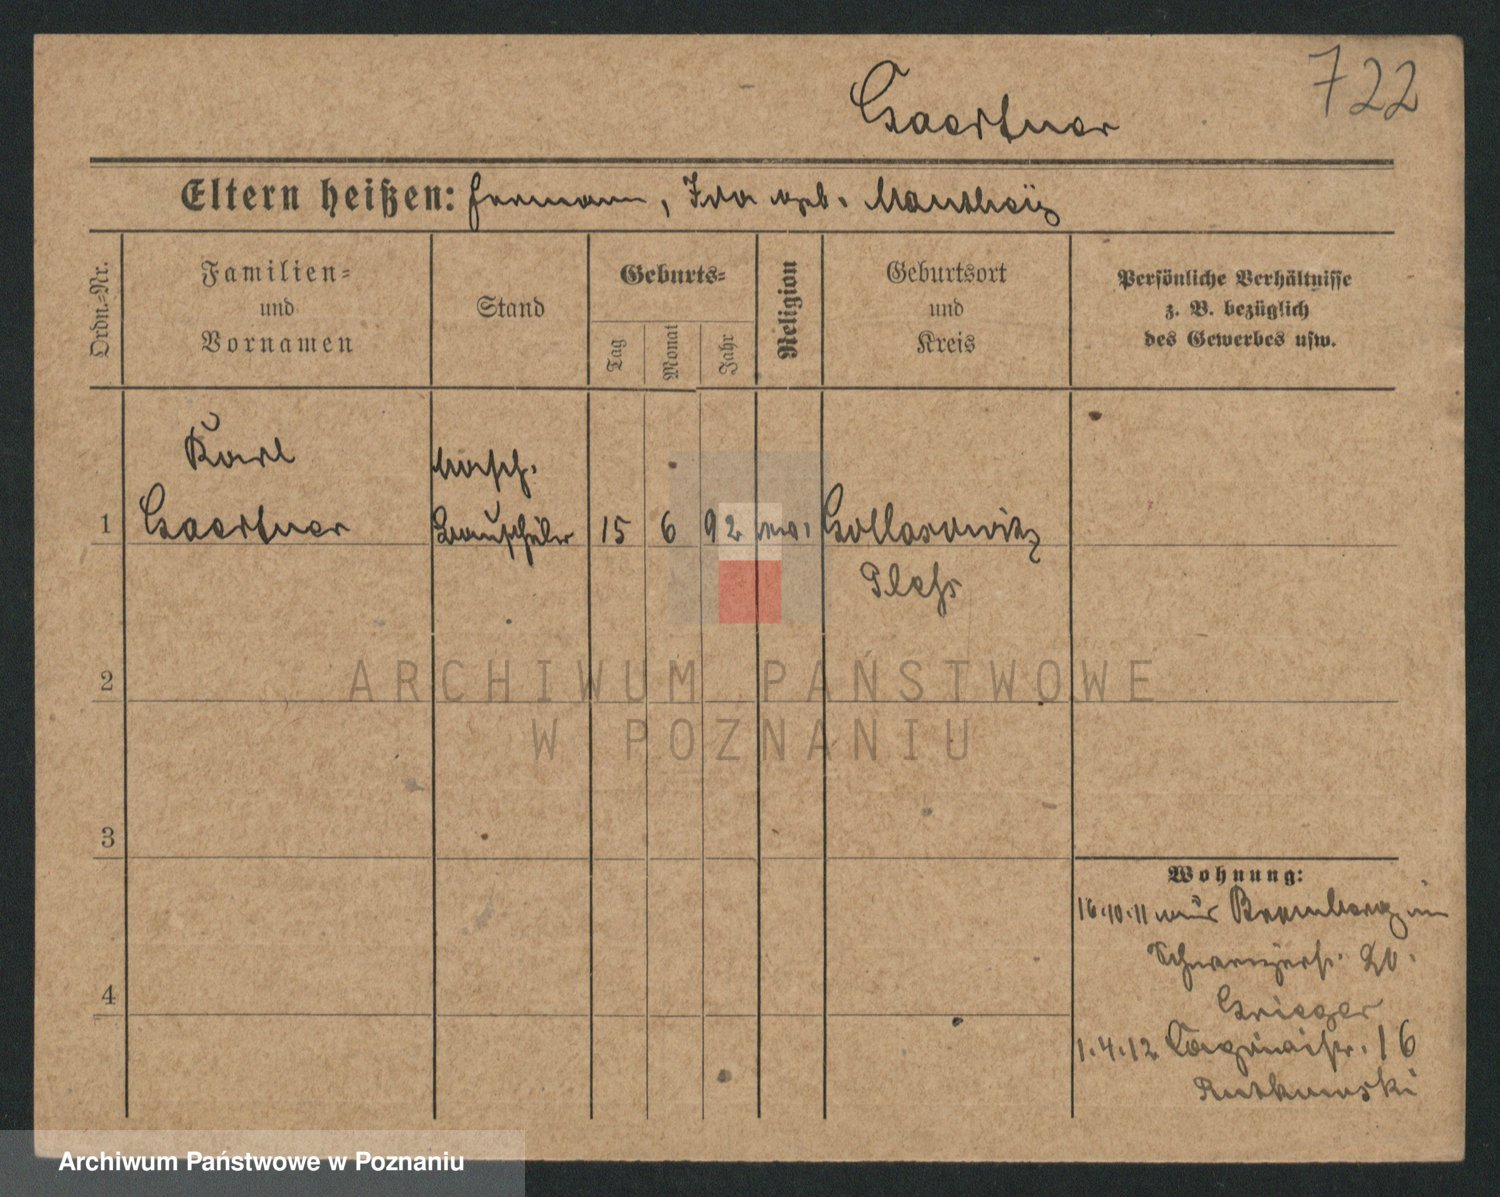 722
Gaertner
Eltern heißen: Hermann, Ida geb. Mantheÿ
Ordn.-Nr.
Familien-
und
Vornamen
Stand
Geburts-
Tag
Monat
Jahr
Religion
Geburtsort
und
Kreis
Persönliche Verhältnisse
z. B. bezüglich
des Gewerbes usw.
Karl
Masch.
1 Gaertner Bauschüler 15 6 92 ev. Gollasowitz
Pless
2
ARCHIWUM PAŃSTWOWE
W POZNANIU
3
Wohnung:
16.10.11 aus Bromberg in
20.
Grieger
4
1.4.12 16
Rutkowski
Archiwum Państwowe w Poznaniu